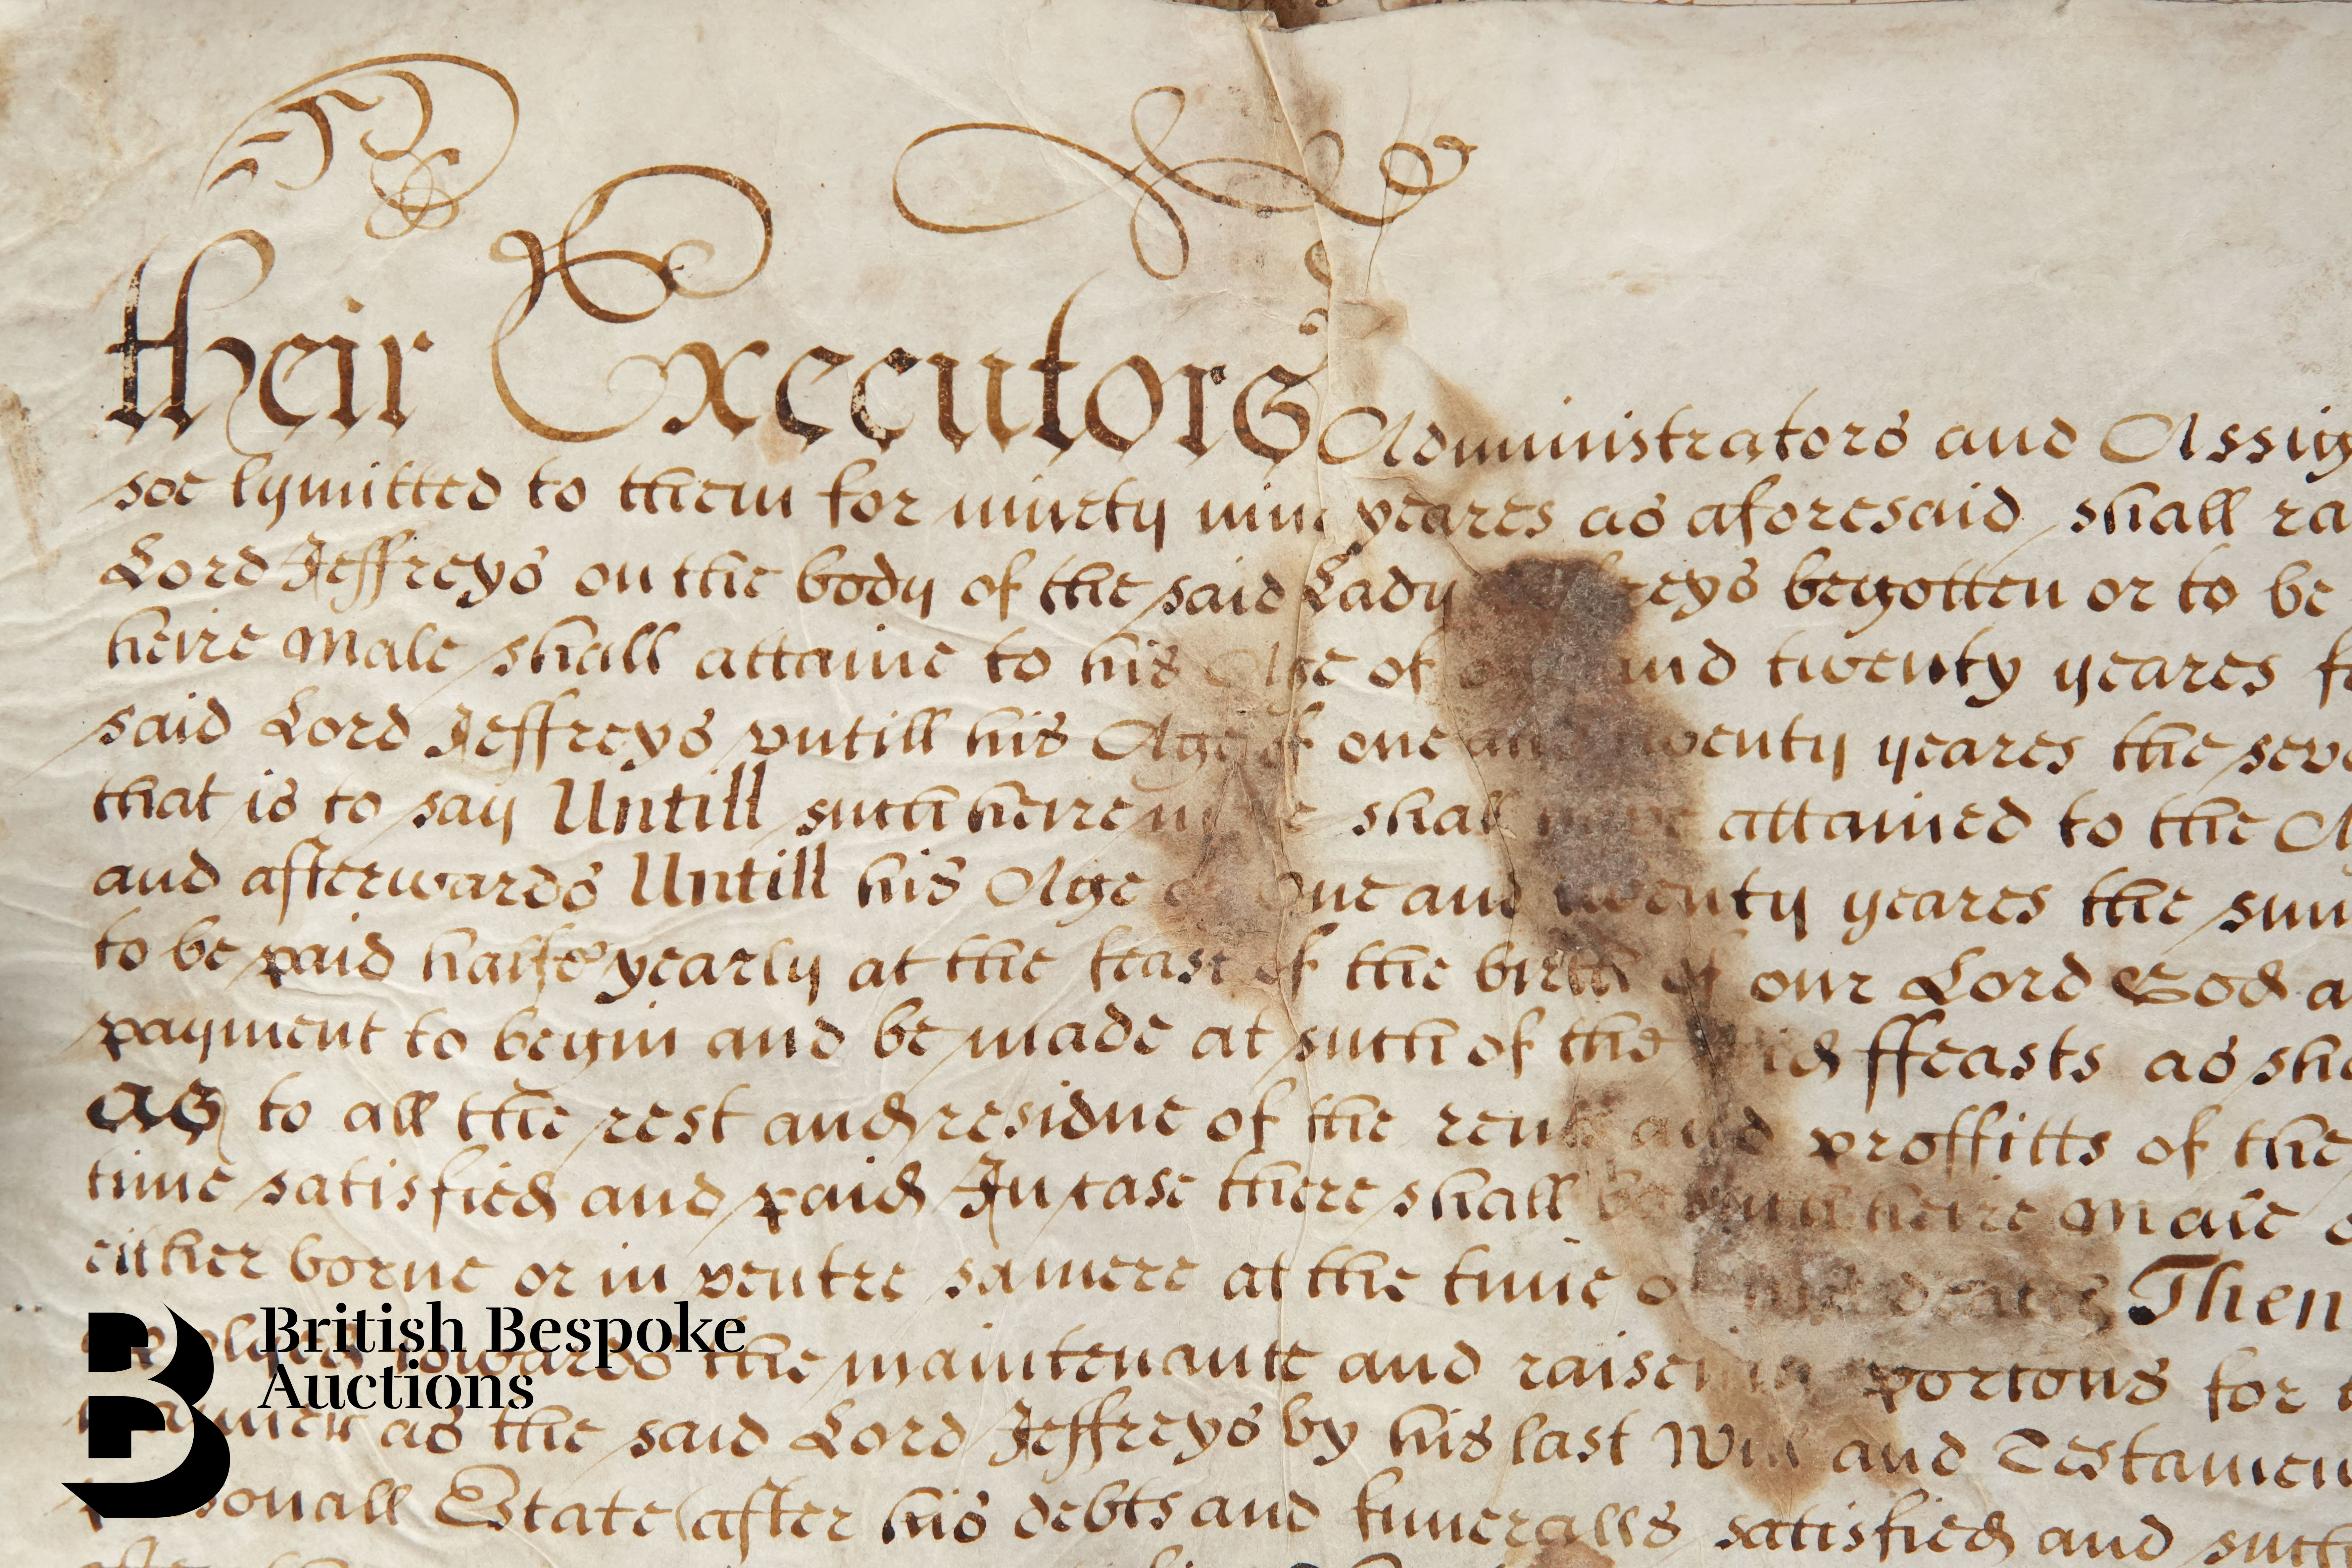 their Executors Administrators and Assig
soe lymitted to them for ninety nine yeares as aforesaid shall ra
Lord Jeffreys on the body of the said Lady Jeffreys begotten or to be
heire Male shall attaine to his Age of one and twenty yeares f
said Lord Jeffreys vntill his Age of one and twenty yeares the seve
that is to say Untill such heire male shall have attained to the A
and afterwards Untill his Age of One and twenty yeares the sum
to be paid halfe yearly at the feast of the birth of our Lord God a
payment to begin and be made at such of the said ffeasts as sha
As to all the rest and residue of the rents and proffitts of the
time satisfied and paid In case there shall be such heire Male
either borne or in ventre samere at the time of his decease Then
towards the maintenance and raiseing portons for
as the said Lord Jeffreys by his last Will and Testamen
Estate (after his debts and funeralls satisfied and such
British Bespoke
Auctions